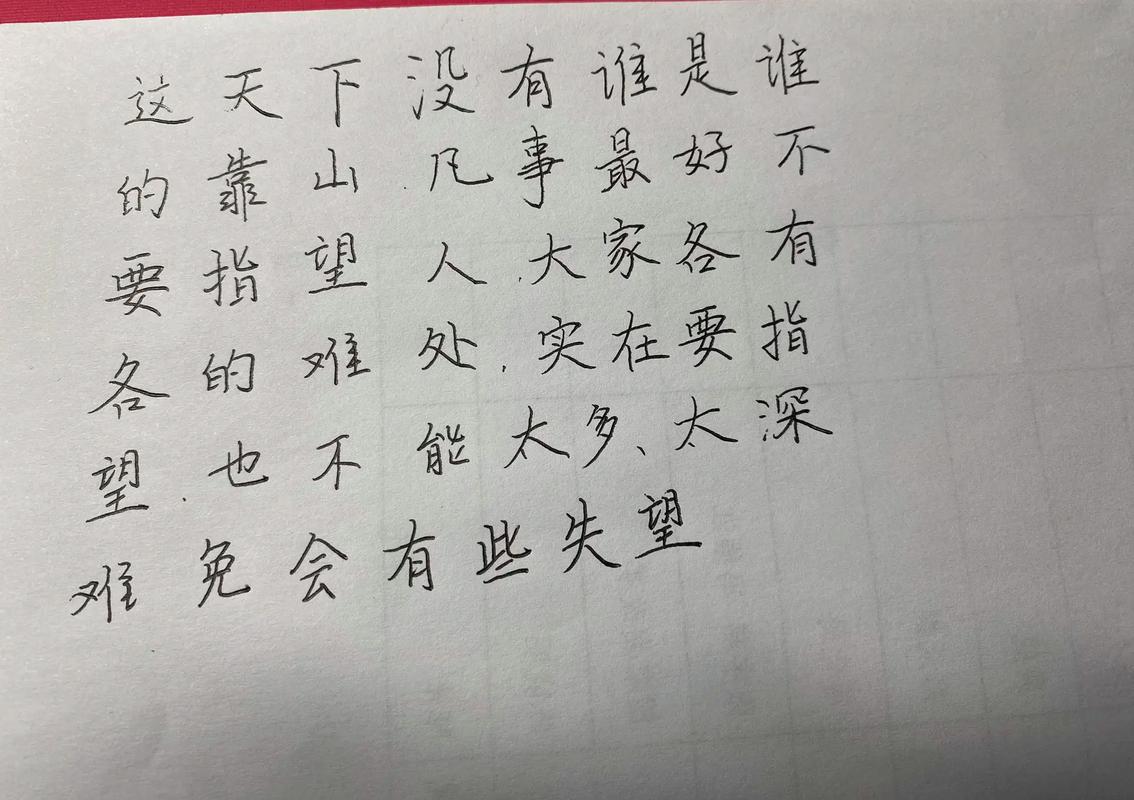 这天下没有谁是谁
的靠山.凡事最好不
要指望人.大家各有
各的难处.实在要指
望.也不能太多、太深
难免会有些失望